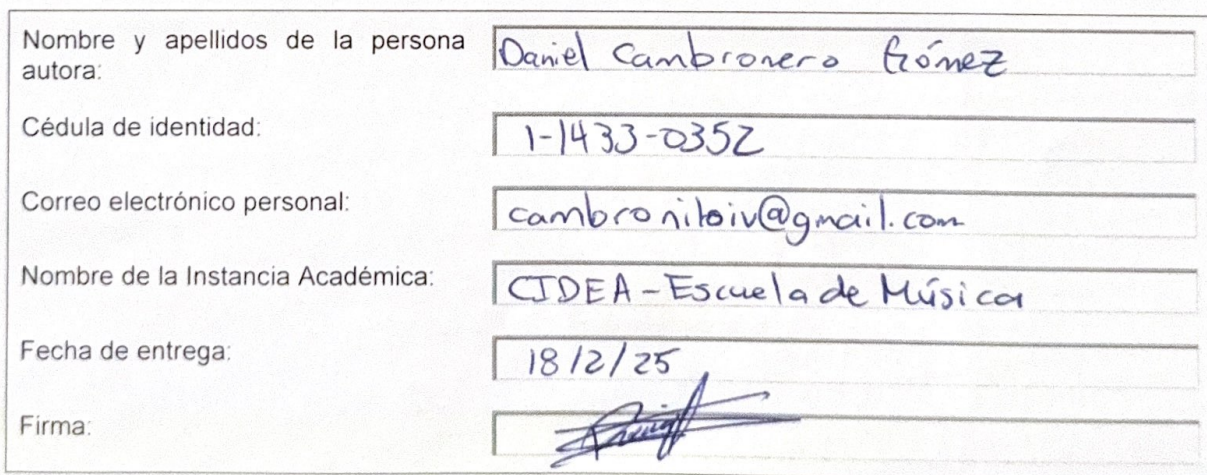 Nombre y apellidos de la persona autora: Daniel Cambronero Gómez
Cédula de identidad: 1-1433-0352
Correo electrónico personal: cambronitoiv@gmail.com
Nombre de la Instancia Académica: CIDEA-Escuela de Música
Fecha de entrega: 18/2/25
Firma: